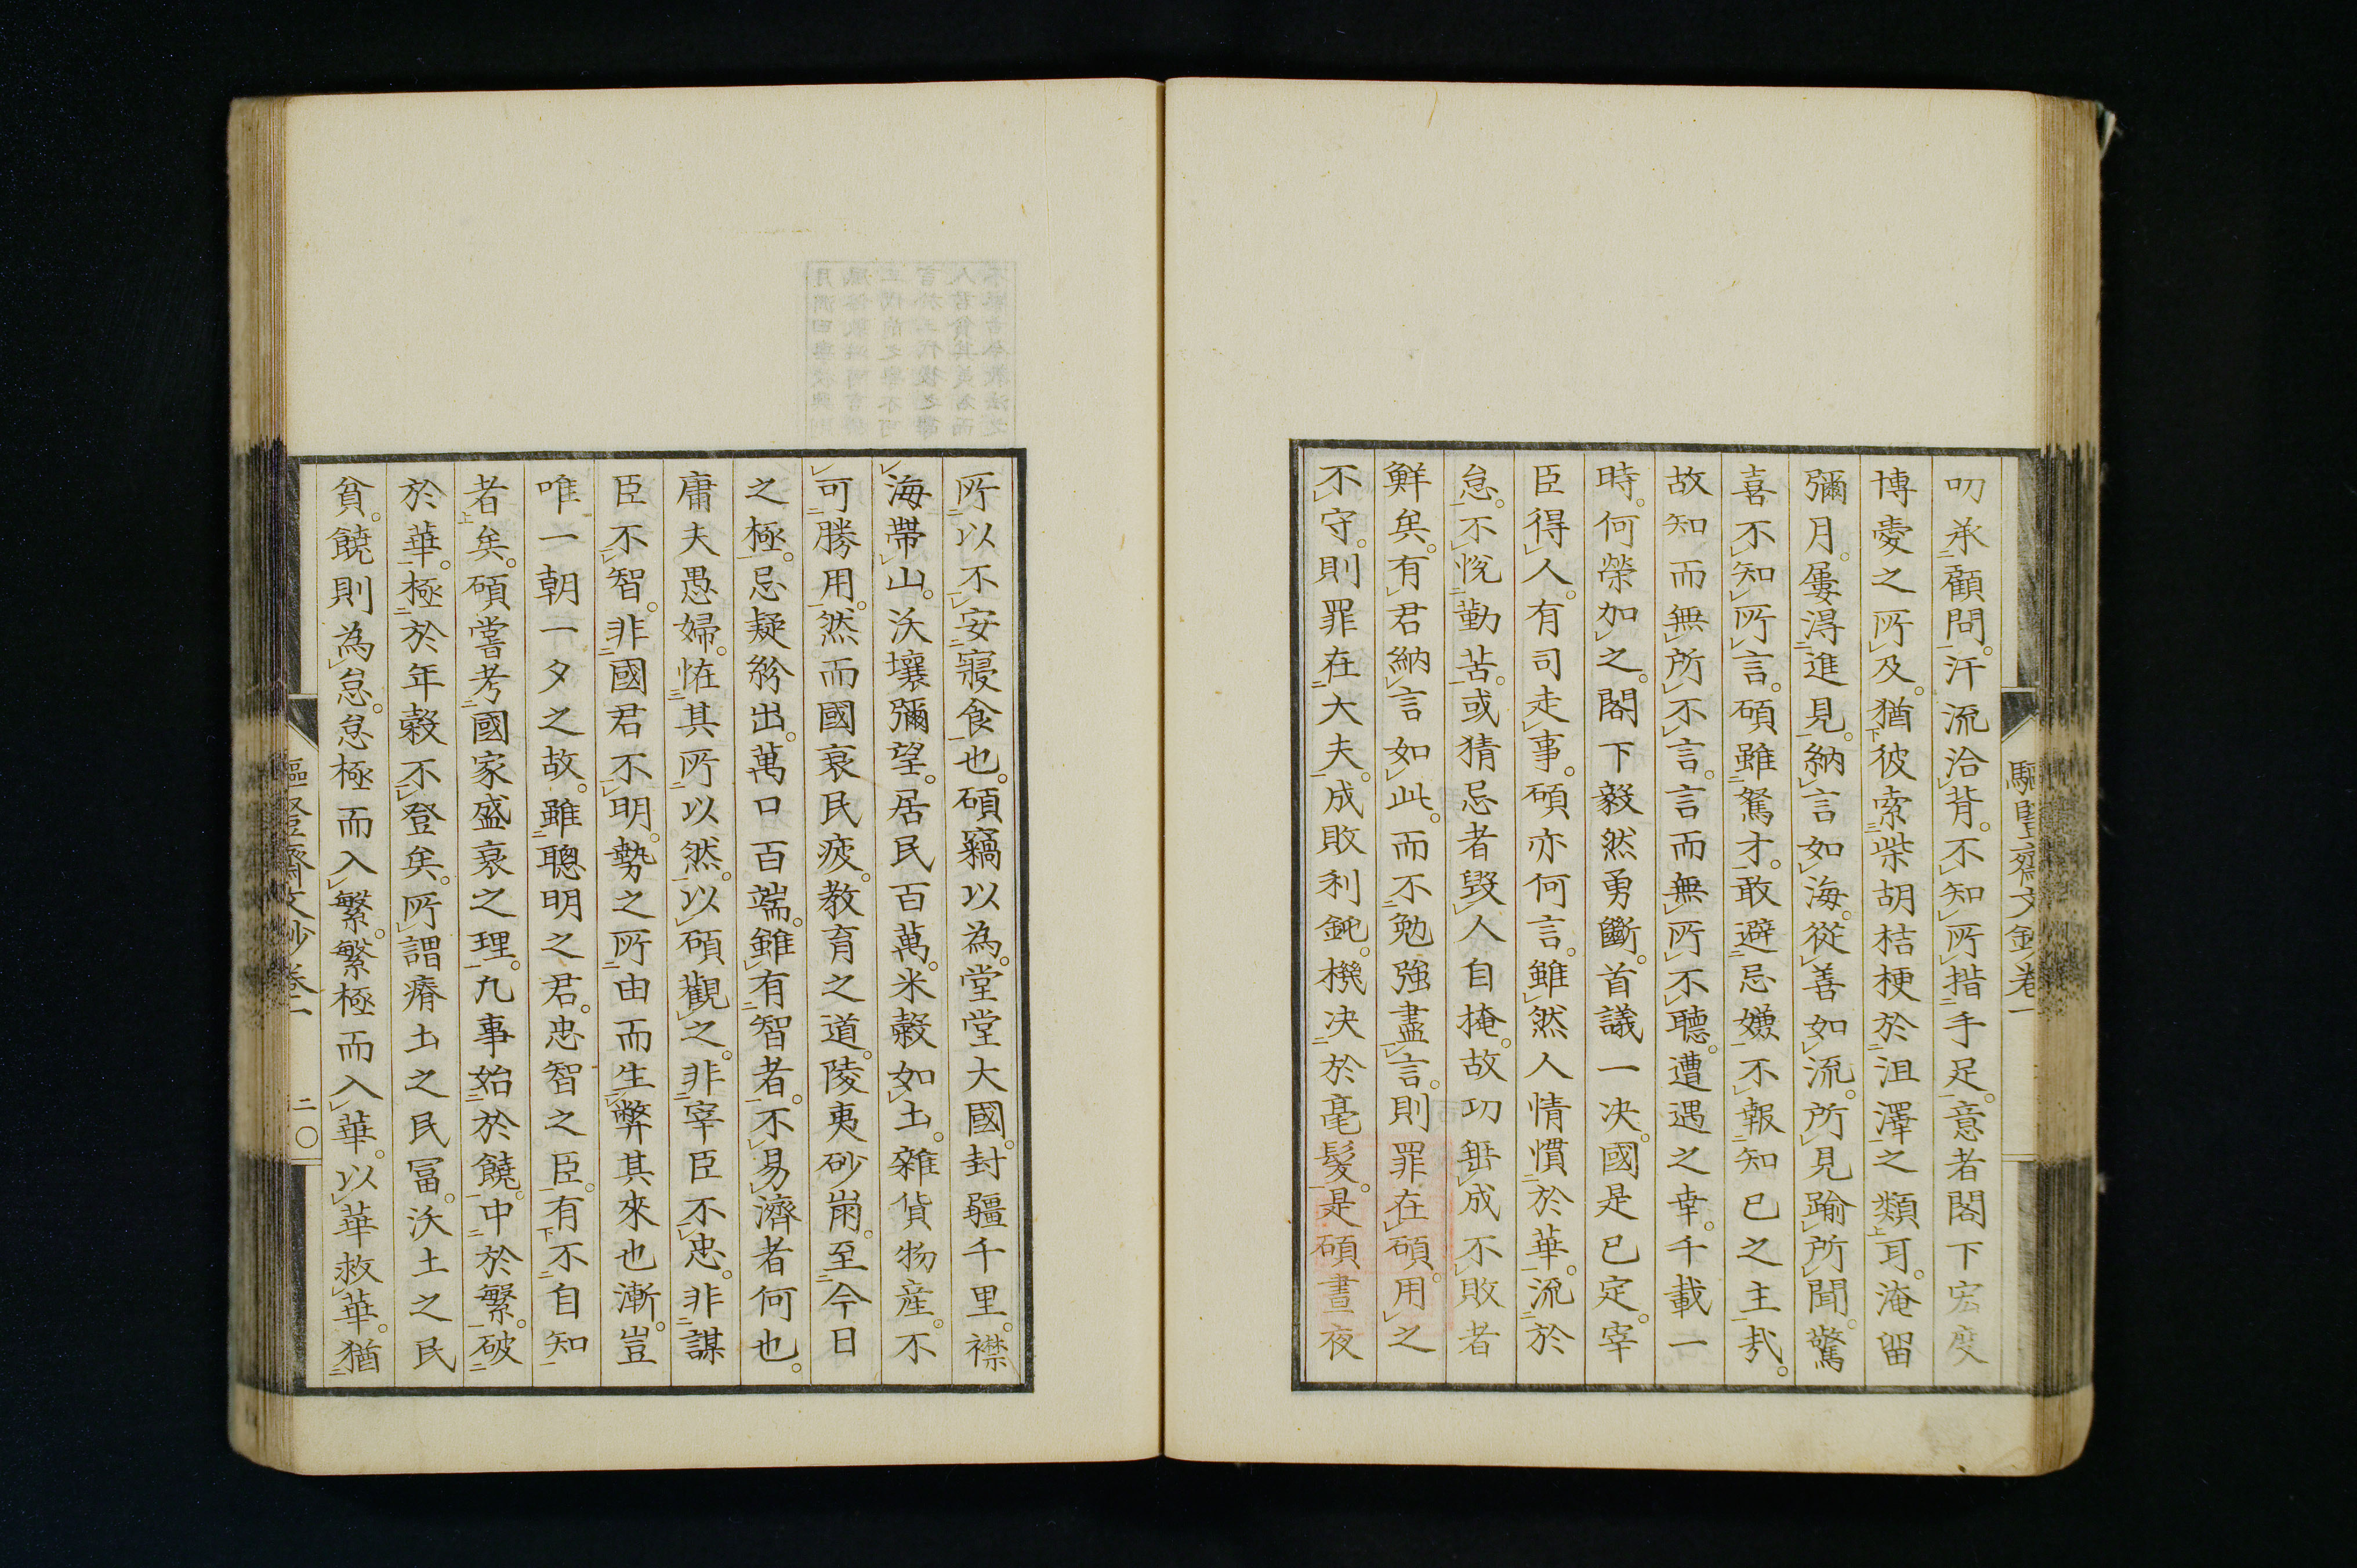 叨承顧問。汗流洽背。不知所措手足。意者閣下宏度
博愛之所及。猶彼索柴胡桔梗於沮澤之類耳。淹留
彌月。屢得進見。納言如海。從善如流。所見踰所聞。驚
喜不知所言。碩雖駑才。敢避忌嫌不報知己之主哉。
故知而無所不言。言而無所不聽。遭遇之幸。千載一
時。何榮加之。閣下毅然勇斷。首議一决。國是已定。宰
臣得人。有司走事。碩亦何言。雖然人情慣於華。流於
怠。不悅勤苦。或猜忌者毀人自掩。故功無成不敗者
鮮矣。有君納言如此。而不勉強盡言。則罪在碩。用之
不守。則罪在大夫。成敗利鈍。機决於毫髮。是碩晝夜
所以不安寢食也。碩竊以為。堂堂大國。封疆千里。襟
海帶山。沃壤彌望。居民百萬。米穀如土。雜貨物產。不
可勝用。然而國衰民疲。教育之道。陵夷砂崩。至今日
之極。忌疑紛出。萬口百端。雖有智者。不易濟者何也。
庸夫愚婦。恠其所以然。以碩觀之。非宰臣不忠。非謀
臣不智。非國君不明。勢之所由而生。弊其來也漸。豈
唯一朝一夕之故。雖聰明之君。忠智之臣。有不自知
者矣。碩嘗考國家盛衰之理。凡事始於饒。中於繁。破
於華。極於年穀不登矣。所謂瘠土之民冨。沃土之民
貧。饒則為怠。怠極而入繁。繁極而入華。以華救華。猶
驅豎齋文鈔卷一
驅豎齋文鈔卷二
二〇